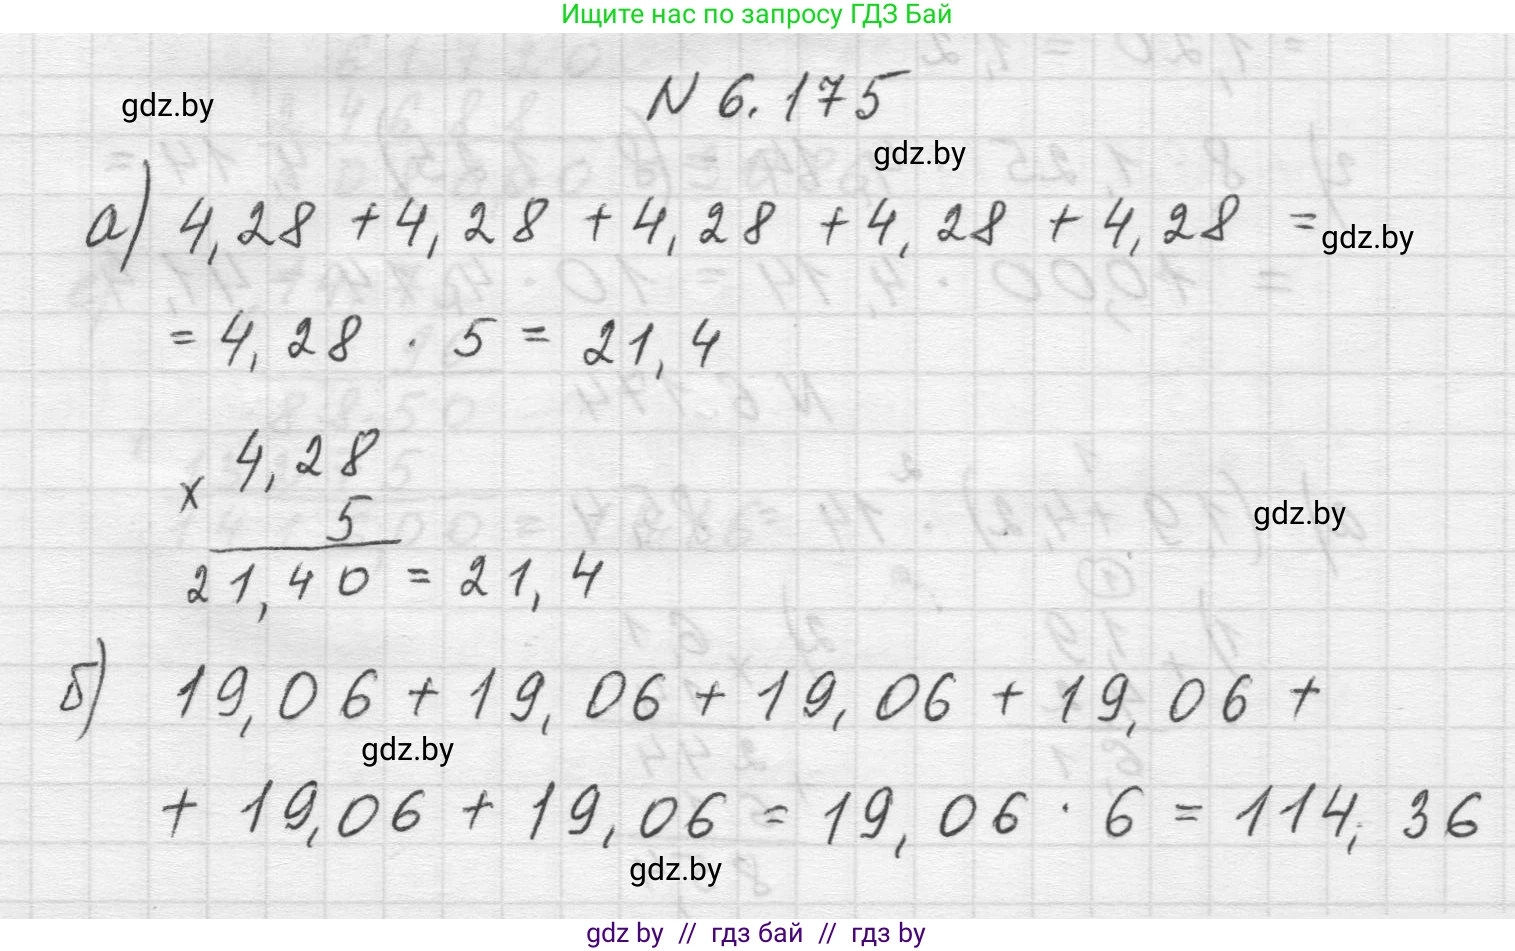 Ищите нас по запросу ГДЗ Бай
N 6.175
gdz.by
gdz.by
а) 4,28 + 4,28 + 4,28 + 4,28 + 4,28 =
gdz.by
= 4,28 · 5 = 21,4
x 4,28
5
gdz.by
21,40 = 21,4
б) 19,06 + 19,06 + 19,06 + 19,06 +
gdz.by
+ 19,06 + 19,06 = 19,06 · 6 = 114,36
gdz.by
gdz by // гдз бай // гдз by